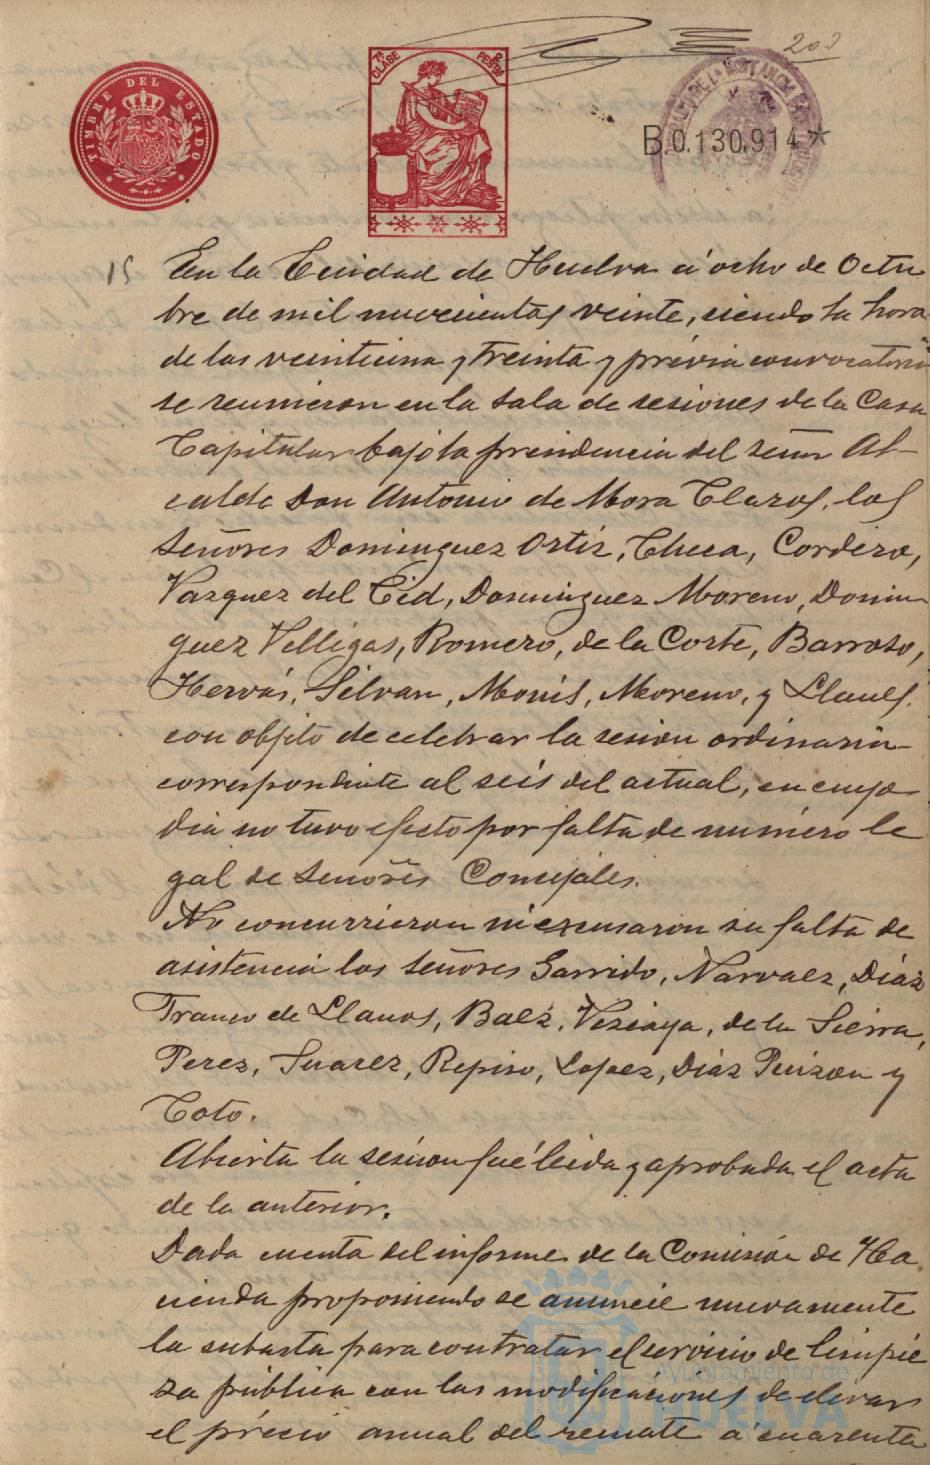 203
TIMBRE DEL ESTADO
7ª CLASE
2 PESTAS
B.0.130,914 *
15
En la Ciudad de Huelva á ocho de Octu
bre de mil nuevecientos veinte, siendo la hora
de las veintiuna y treinta y prévia convocatoria
se reunieron en la sala de sesiones de la Casa
Capitular bajo la presidencia del señor Al-
calde Don Antonio de Mora Claros, los
Señores Dominguez Ortiz, Checa, Cordero,
Vazquez del Cid, Dominguez Moreno, Domin
guez Velligas, Romero, de la Corte, Barroso,
Hervás, Silvan, Monis, Moreno, y Llanes.
con objeto de celebrar la sesion ordinaria
correspondiente al seis del actual, en cuyo
dia no tuvo efecto por falta de número le
gal de Señores Concejales.
No concurrieron ni excusaron su falta de
asistencia los señores Garrido, Narvaez, Díaz
Franco de Llanos, Baez, Vizcaya, de la Sierra,
Perez, Suarez, Repiso, Lopez, Díaz Pinzon y
Toto.
Abierta la sesion fué leida y aprobada el acta
de la anterior.
Dada cuenta del informe de la Comisión de Ha
cienda proponiendo se anuncie nuevamente
la subasta para contratar el servicio de limpie
za pública con las modificaciones de elevar
el précio anual del remate á cuarenta
Ayuntamiento de
HUELVA